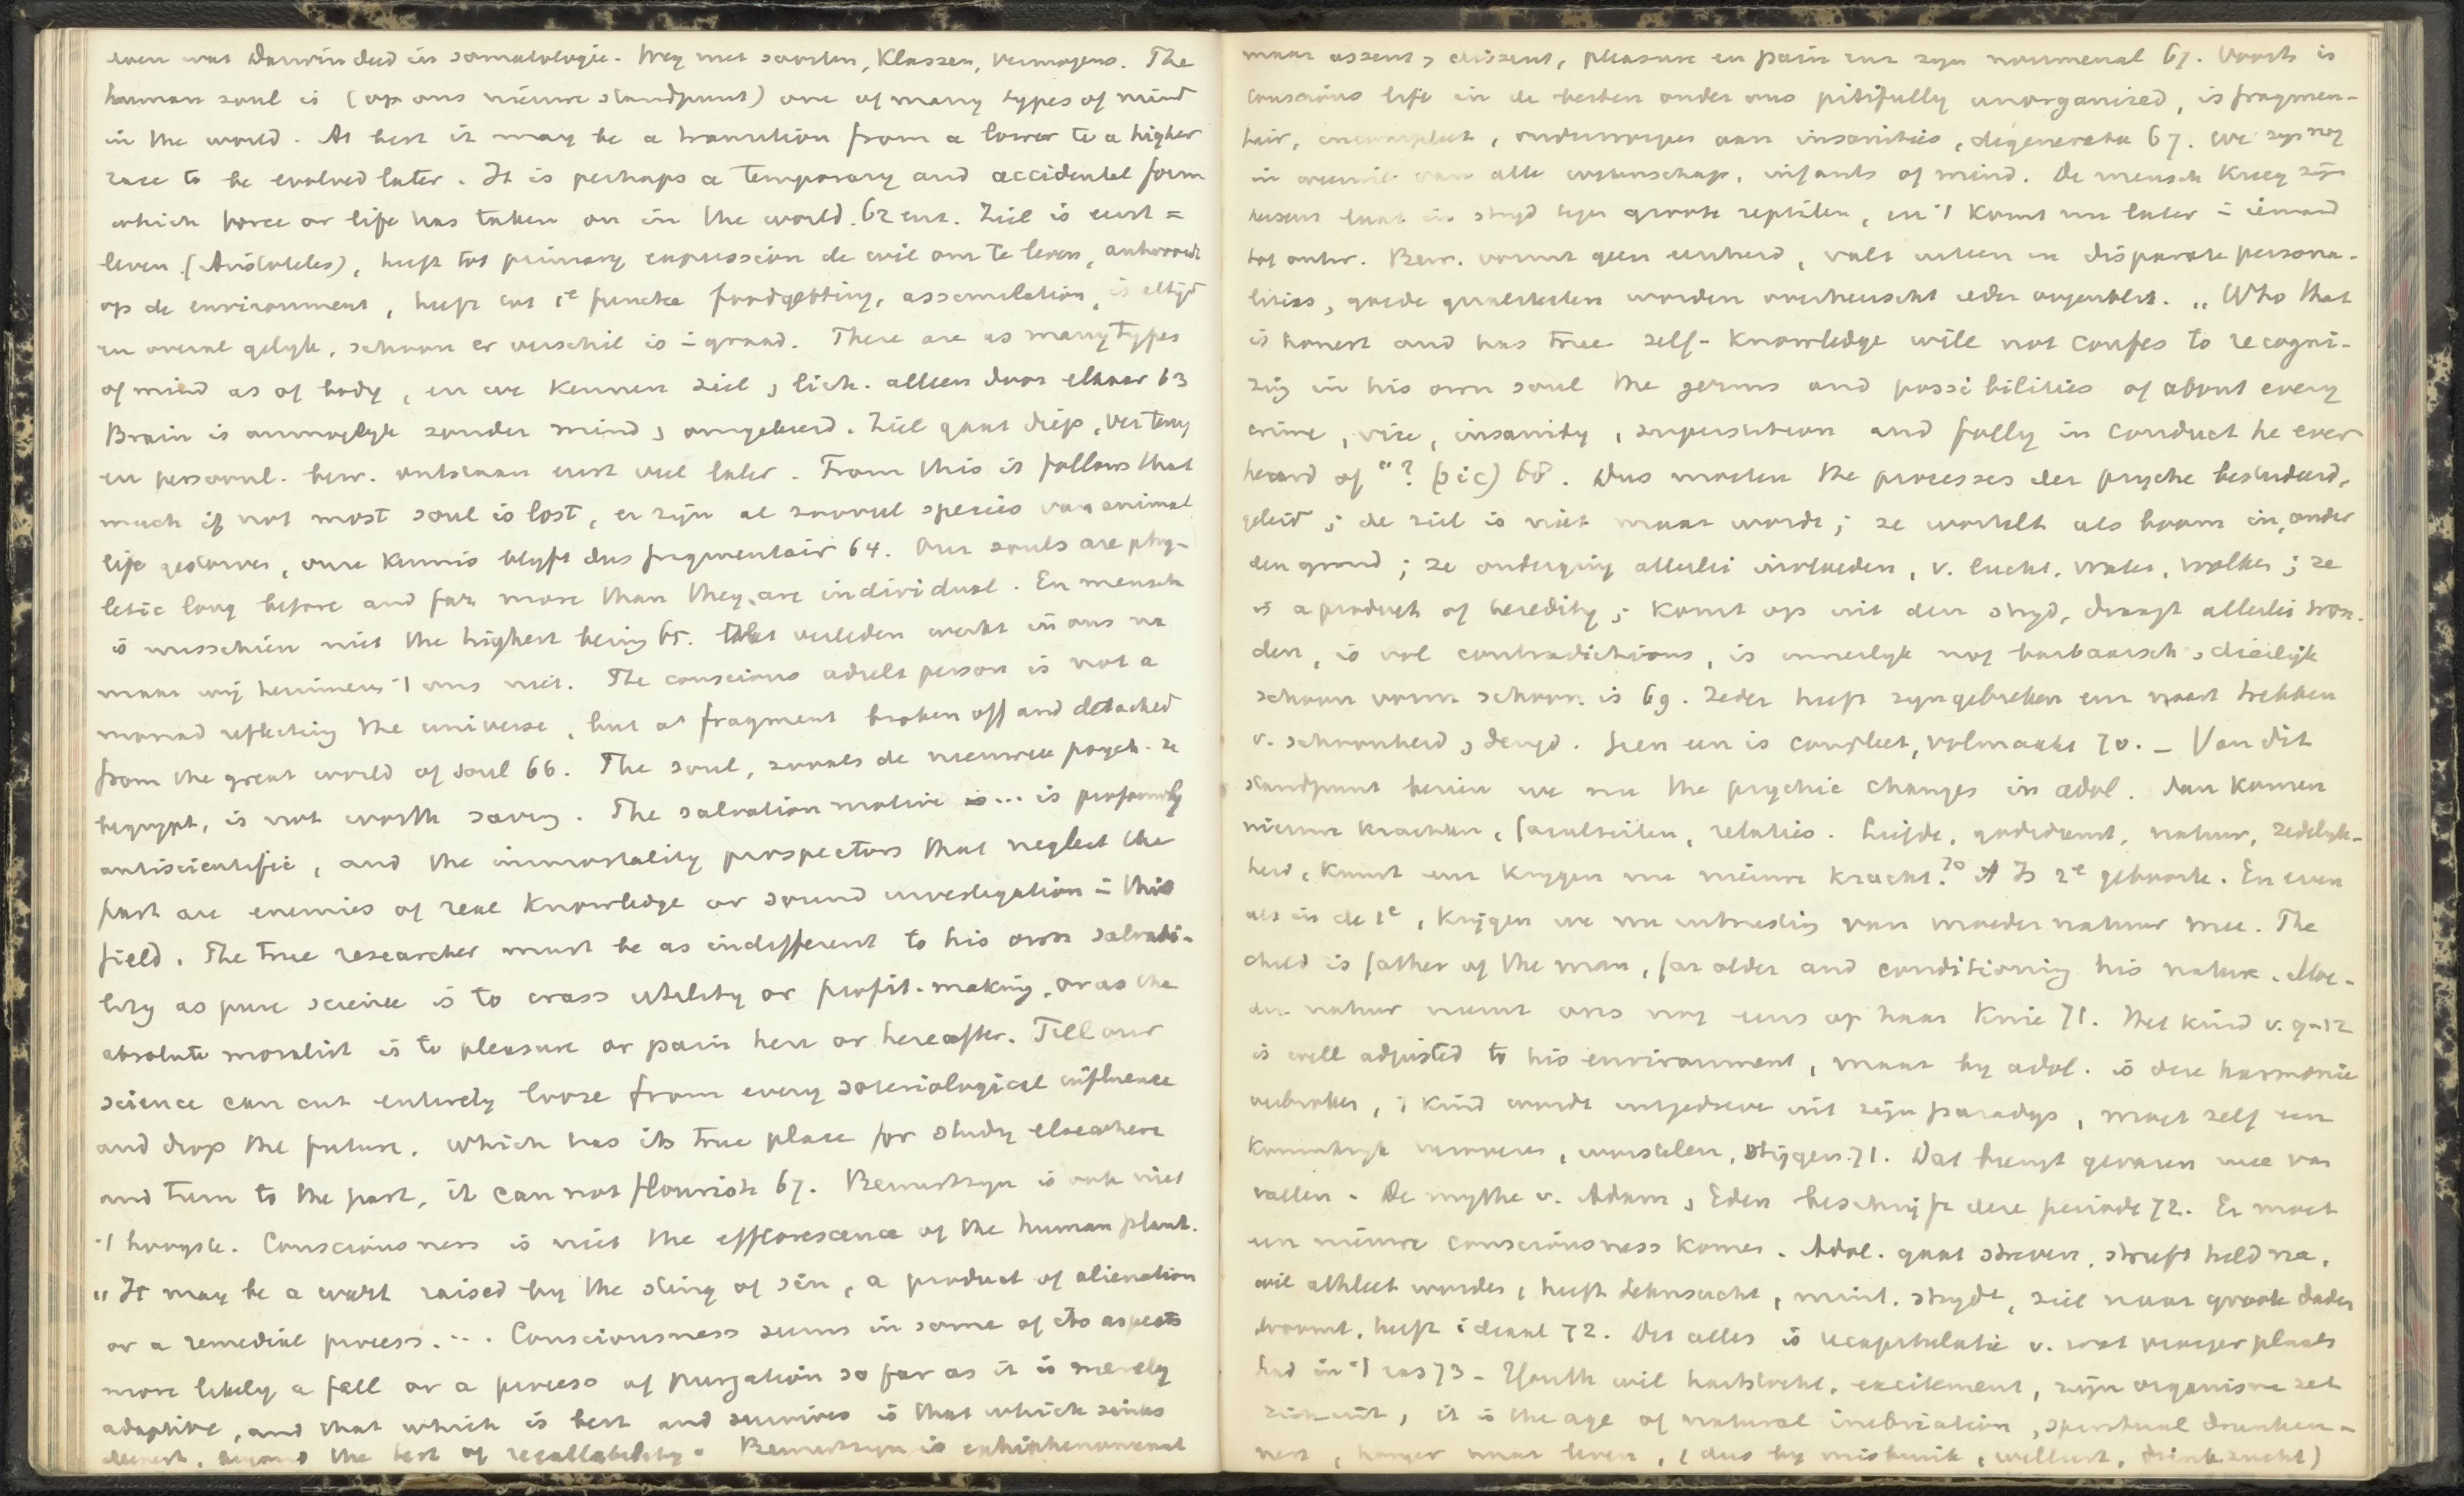 even wat Darwin deed in somatologie. Weg met soorten, Klassen, vermogens. The
human soul is (op ons nieuwe standpunt) one of many types of mind
in the world. At best it may be a transition from a lower to a higher
race to be evolved later. It is perhaps a temporary and accidental form
which force or life has taken on in the world. 62 env. Ziel is eerst =
leven (Aristoteles), heeft tot primary expression de wil om te leven, antwoordt
op de environment, heeft tot 1e functie foodgetting, assimilation, is altijd
en overal gelijk, schoon er verschil is in graad. There are as many types
of mind as of body, en we kennen ziel , lich. alleen door elkaar 63
Brain is onmogelijk zonder mind , omgekeerd. Ziel gaat diep, ver terug
en persoonl. bew. ontstaan eerst veel later. From this it follows that
much if not most soul is lost, er zijn al zooveel species van animal
life gestorven, onze kennis blijft dus fragmentair 64. Our souls are phy-
letic long before and far more than they are individual. En mensch
is misschien niet the highest being 65. Het verleden werkt in ons na
maar wij herinneren 't ons niet. The conscious adult person is not a
monad reflecting the universe, but a fragment broken off and detached
from the great world of soul 66. The soul, zooals de nieuwere psych. ze
begrijpt, is not worth saving. The salvation motive is... is profoundly
antiscientific, and the immortality prospectors that neglect the
past are enemies of real knowledge or sound investigation in this
field. The true researcher must be as indifferent to his own salvabi-
lity as pure science is to crass utility or profit-making, or as the
absolute moralist is to pleasure or pain here or hereafter. Till our
science can cut entirely loose from every soteriological influence
and drop the future, which has its true place for study elsewhere
and turn to the past, it can not flourish 67. Bewustzyn is ook niet
't hoogste. Consciousness is niet the efflorescence of the human plant.
"It may be a wart raised by the sting of sin, a product of alienation
or a remedial process. ... Consciousness seems in some of its aspects
more likely a fall or a process of purgation so far as it is merely
adaptive, and that which is best and survives is that which sinks
deepest, beyond the test of recallability. Bewustzyn is epiphenomenal
maar assent , dissent, pleasure en pain enz zijn noumenal 67. Voorts is
conscious life in de besten onder ons pitifully unorganized, is fragmen-
tair, incompleet, onderworpen aan insanities, degeneratie 67. We zijn nog
in van alle wetenschap, infants of mind. De mensch kreeg zijn
in strijd tegen groote reptilen, en 't komt nu later in iemand
tot ontw. Bew. vormt geen eenheid, valt uiteen in disparate persona-
lities, goede qualiteiten worden overheerscht ieder oogenblik. "Who that
is honest and has true self-knowledge will not confes to recogni-
zing in his own soul the germs and possibilities of about every
crime, vice, insanity, superstition and folly in conduct he ever
heard of"? (sic) 68. Dus moeten the processes der psyche bestudeerd,
geleid ; de ziel is niet maar wordt ; ze wortelt als boom in, onder
den grond ; ze onderging allerlei invloeden, v. lucht, water, wolken ; ze
is a product of heredity ; komt op uit den strijd, draagt allerlei won-
den, is vol contradictions, is innerlijk nog barbaarsch , dierlijk
schoon vorm schoon is 69. Ieder heeft zijn gebreken en naast trekken
v. schoonheid , deugd. Geen een is compleet, volmaakt 70. - Van dit
standpunt bezien we nu the psychic changes in adol. Dan komen
nieuwe krachten, faculteiten, relaties. Liefde, godsdienst, natuur, zedelijk-
heid, kunst enz krijgen nu nieuwe kracht. 70 Is 2e geboorte. En even
als in de 1e, krijgen we nu uitrusting van moeder natuur mee. The
child is father of the man, far older and conditioning his nature. Moe-
der natuur neemt ons nog eens op haar knie 71. Het kind v. 9-12
is well adjusted to his environment, maar by adol. is deze harmonie
verbroken, 't kind wordt uitgedreven uit zijn paradijs, moet zelf een
koninkrijk veroveren, worstelen, stijgen. 71. Dat brengt gevaren mee van
vallen. De mythe v. Adam , Eden beschrijft deze periode 72. Er moet
een nieuwe consciousness komen. Adol. gaat streven, streeft held na,
wil athleet worden, heeft sehnsucht, mint, strijdt, ziet naar groote daden
droomt, heeft ideaal 72. Dit alles is recapitulatie v. wat vroeger plaats
had in 't ras 73 - Youth wil hartstocht, excitement, zijn organisme zet
zich uit, it is the age of natural inebriation, spiritual drunken-
ness, honger naar leven, (dus by misbruik, wellust, drinkzucht)